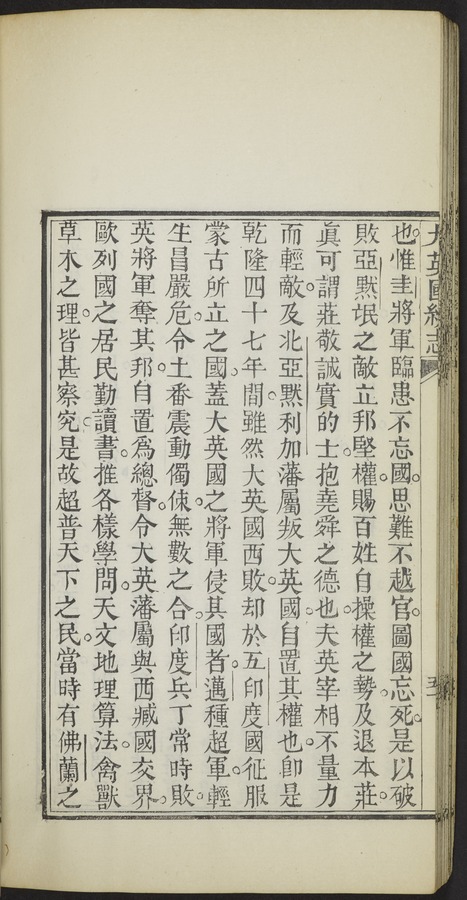 大英國統志
也。惟圭將軍臨患不忘國。思難不越官。圖國忘死。是以破
敗亞黙氓之敵立邦堅權。賜百姓自操權之勢。及退本莊。
眞可謂莊敬誠實的士。抱堯舜之德也。夫英宰相不量力
而輕敵。及北亞黙利加藩屬叛大英國。自置其權也。卽是
乾隆四十七年間。雖然大英國西敗。却於五印度國征服
蒙古所立之國。蓋大英國之將軍侵其國者。邁種超軍。輕
生昌嚴危。令土番震動。僩倲無數之合。印度兵丁常時敗。
英將軍奪其邦。自置爲總督。令大英藩屬與西臧國交界。
歐列國之居民勤讀書。推各樣學問。天文地理算法。禽獸
草木之理。皆甚察究。是故超普天下之民。當時有佛蘭之